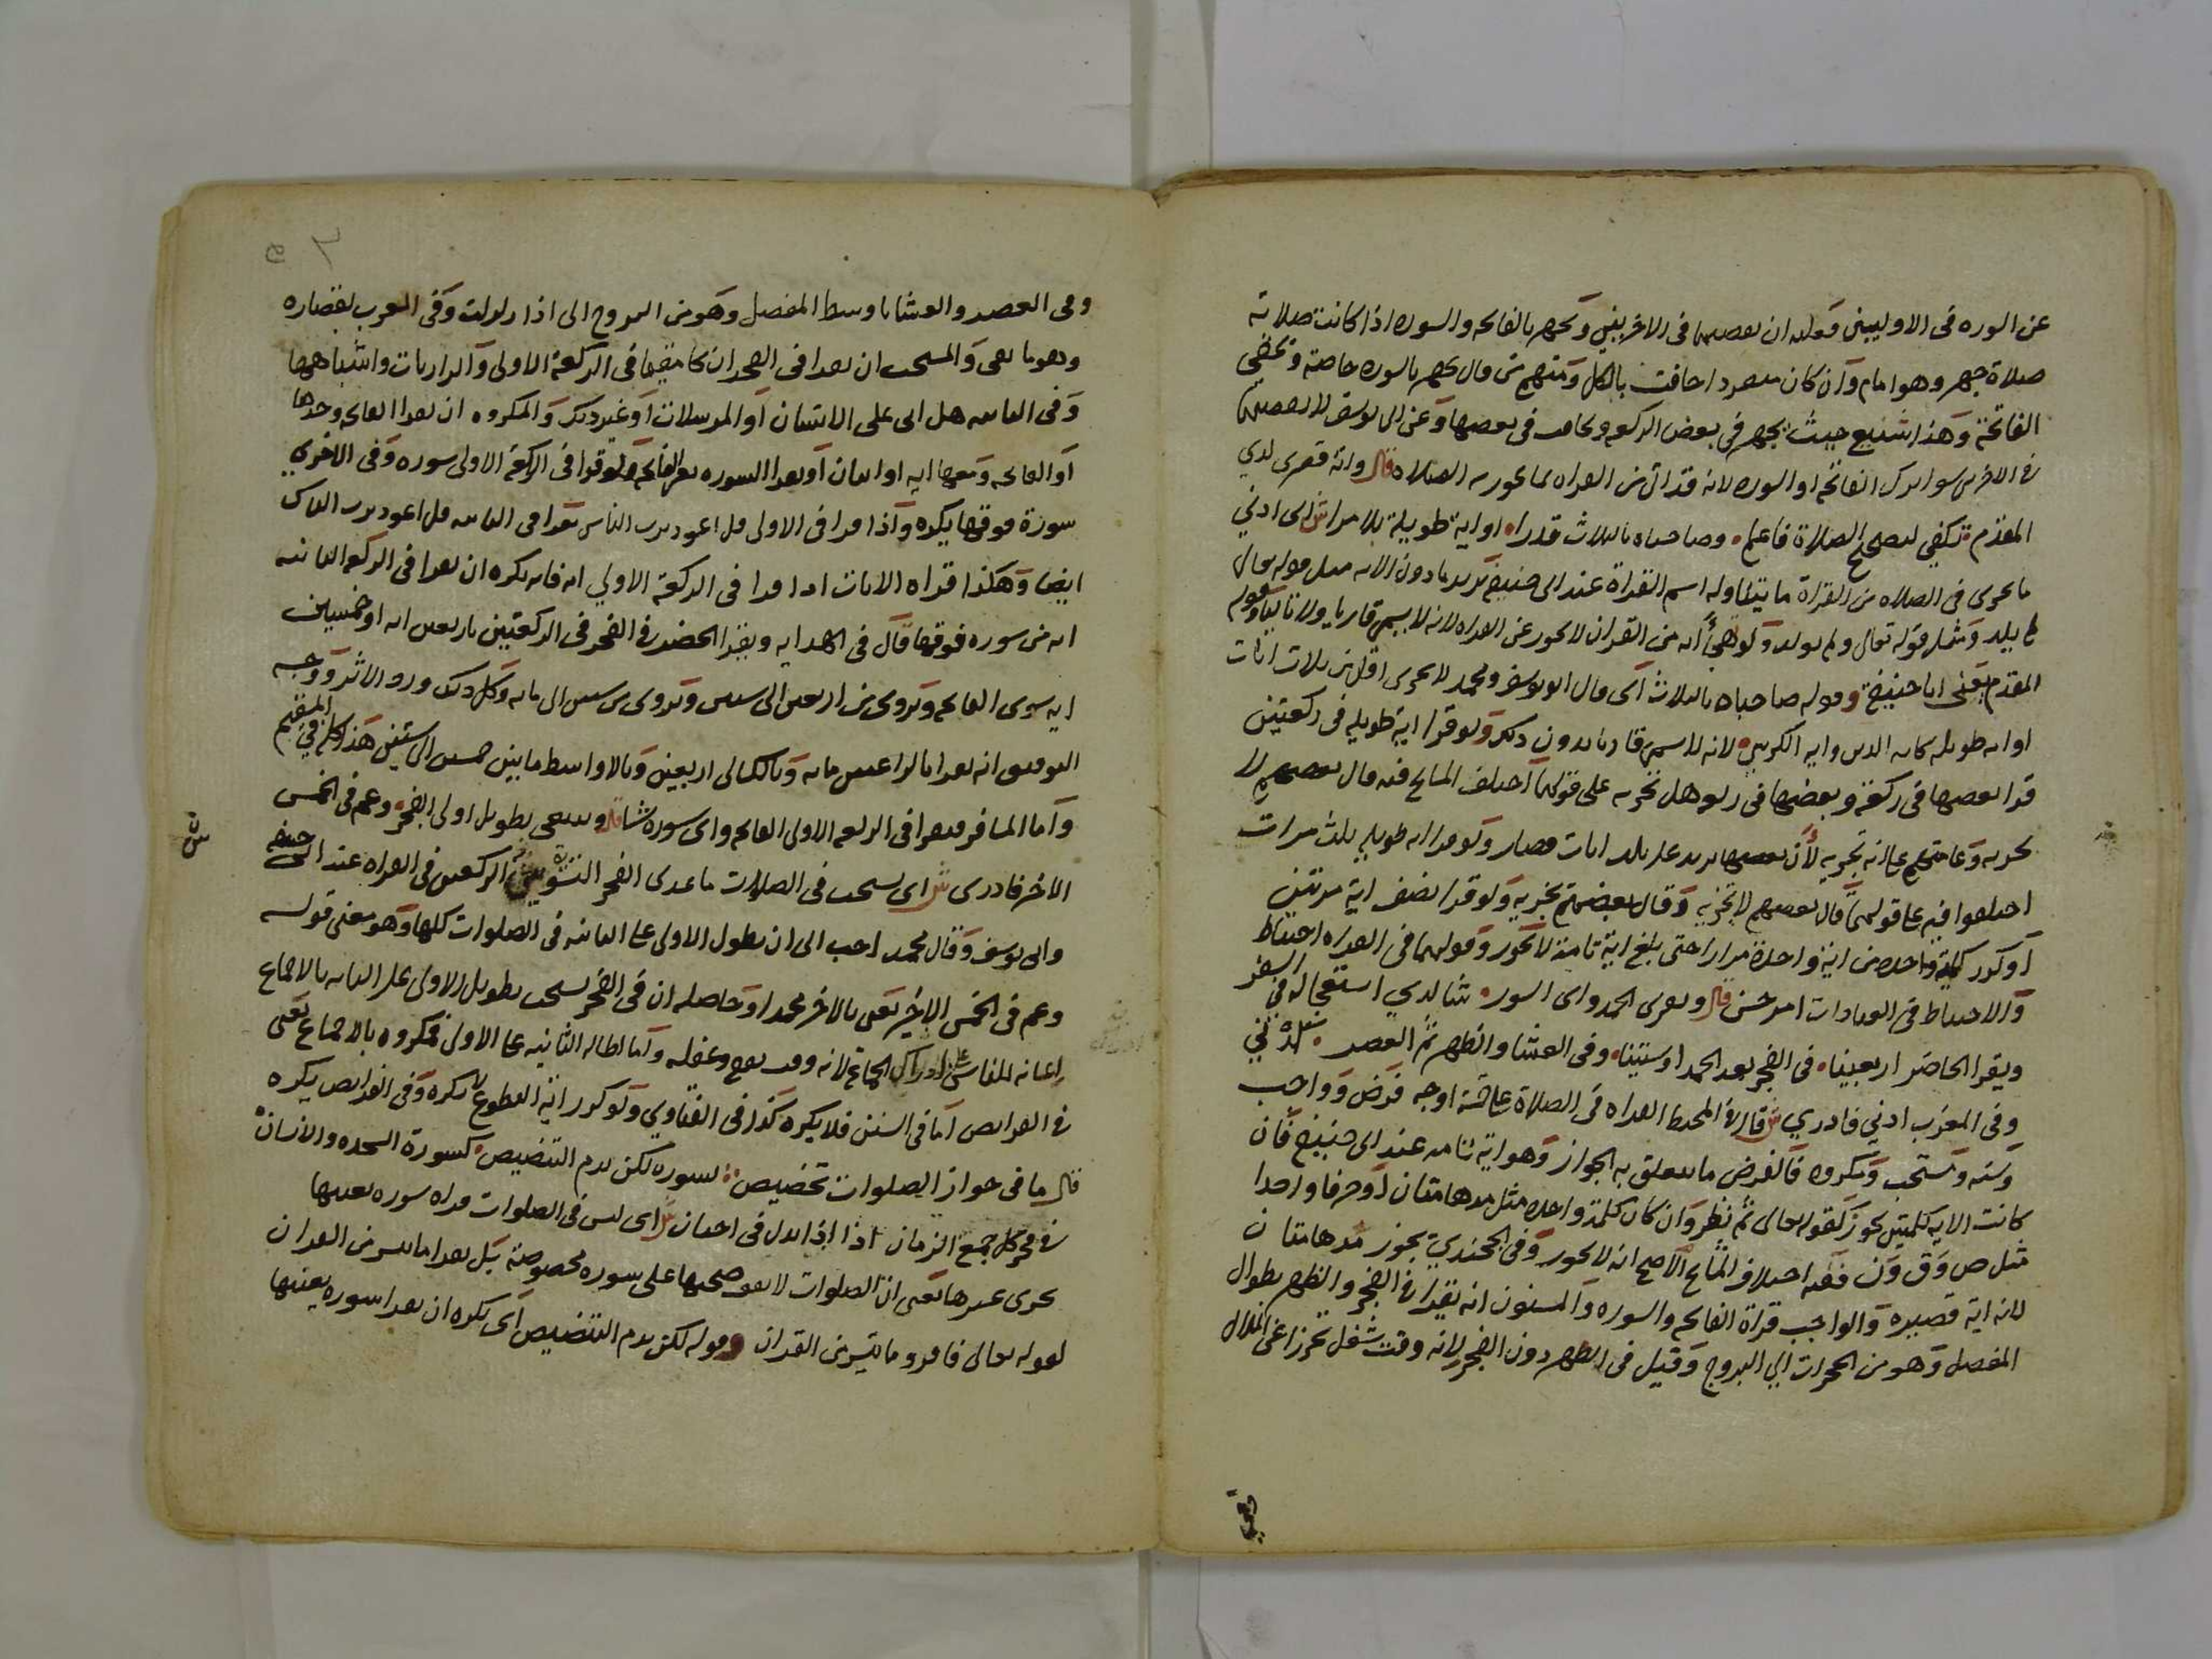 عن السوره فى الاوليين فعليه ان يقضيها فى الاخريين ويجهر بالفاتحه والسوره اذا كانت صلاته
صلاة جهر وهو امام وان كان منفردا خافت بالكل ومنهم من قال يجهر بالسوره خاصة ويخفى
الفاتحة وهذا شنيع حيث يجهر فى بعض الركعه ويخافت فى بعضها وعن ابى يوسف لا يقضيها
فى الاخرين سوا ترك الفاتحه او السوره لانه قد اتى من القراه بما تجوز به الصلاه قال واية قصرى لدى
المقدم تكفى لتصحيح الصلاة فاعلم وصاحباه بالثلاث قدرا او اية طويلة بلا مرا ش اى ادنى
ما يجزى فى الصلاه من القراة ما يتناوله اسم القراة عند ابى حنيفة يريد ما دون الايه مثل قوله تعالى
لم يلد ومثل قوله تعالى ولم يولد ولو تهجأ ايه من القران لا يجوز عن القراه لانه لا يسمى قاريا ولا تاليا وقوله
المقدم يعنى ابا حنيفة وقوله صاحباه بالثلاث اى قال ابو يوسف ومحمد لا يجزى اقل من ثلاث ايات
او ايه طويله كايه الدين وايه الكرسى لانه لا يسمى قاريا بدون ذلك ولو قرا اية طويله فى ركعتين
قرا بعضها فى ركعة وبعضها فى ركعه هل تجزيه على قولهما اختلف المشايخ فيه قال بعضهم لا
تجزيه وعامتهم على انه تجزيه لان بعضها يزيد على ثلاث ايات قصار ولو قرا ايه طويله ثلث مرات
اختلفوا فيه على قولهما قال بعضهم لا تجزيه وقال بعضهم تجزيه ولو قرا نصف اية مرتين
او كرر كلمة واحده من اية واحدة مرارا حتى بلغ اية تامة لا تجوز وقولهما فى القراه احتياط
والاحتياط فى العبادات امر حسن قال ويقرى الحمد واى السور شا لدى استعجاله فى السفر
ويقرا الحاضر اربعينا فى الفجر بعد الحمد او ستينا وفى العشا والظهر ثم العصر
وفى المغرب ادنى فادرى ش قال فى المحيط القراه فى الصلاة على خمسة اوجه فرض وواجب
وسنه ومستحب ومكروه فالفرض ما يتعلق به الجواز وهو اية تامه عند ابى حنيفة فان
كانت الايه كلمتين يجوز كقوله تعالى ثم نظر وان كان كلمة واحده مثل مدهامتان او حرفا واحدا
مثل ص وق ون ففيه اختلاف المشايخ الاصح انه لا يجوز وفى الخجندى يجوز مدهامتان
لانه اية قصيره والواجب قراة الفاتحه والسوره والمسنون انه يقرا فى الفجر والظهر بطوال
المفصل وهو من الحجرات الى البروج وقيل فى الظهر دون الفجر لانه وقت شغل تحرزا عن الملال
وفى العصر والعشا باوسط المفصل وهو من البروج الى اذا زلزلت وفى المغرب بقصاره
وهو ما بقى والمستحب ان يقرا فى الفجر ان كان مقيما فى الركعة الاولى والذاريات واشباهها
وفى الثانيه هل اتى على الانسان او المرسلات او غير ذلك والمكروه ان يقرا الفاتحه وحدها
او الفاتحه ومعها ايه او ايتان او يقرا السوره بغير الفاتحه ولو قرا فى الركعة الاولى سوره وفى الاخرى
سورة فوقها يكره واذا قرا فى الاولى قل اعوذ برب الناس يقرا فى الثانيه قل اعوذ برب الناس
ايضا وهكذا قراه الايات اذا قرا فى الركعة الاولى ايه فانه يكره ان يقرا فى الركعه الثانيه
ايه من سوره فوقها قال فى الهدايه ويقرا الحضر فى الفجر فى الركعتين باربعين ايه او خمسين
ايه سوى الفاتحه ويروى من اربعين الى ستين ويروى من ستين الى مايه وبكل ذلك ورد الاثر ووجه
التوفيق انه يقرا بالراغبين مايه وبالكسالى اربعين وبالاواسط ما بين خمسين الى ستين هذا كله فى المقيم
واما المسافر فيقرا فى الركعه الاولى الفاتحه واى سوره شا قال وينبغى تطويل اولى الفجر وعم فى الخمس
الاخر فادرى ش اى يستحب فى الصلات ما عدى الفجر التسوية بين الركعتين فى القراه عند ابى حنيفه
وابى يوسف وقال محمد احب الى ان يطول الاولى على الثانيه فى الصلوات كلها وهو معنى قوله
وعم فى الخمس الاخير يعنى بالاخر محمدا وحاصله ان فى الفجر يستحب تطويل الاولى على الثانيه بالاجماع
اعانه للناس على ادراك الجماعة لانه وقت نوم وغفله واما اطاله الثانيه على الاولى فمكروه بالاجماع يعنى
فى الفرايض اما فى السنن فلا يكره كذا فى الفتاوى ولو كرر اية فى التطوع لا يكره وفى الفرايض يكره
قال ما فى جواز الصلوات تخصيص لسوره لكن يذم التنصيص كسورة السجده والانسان
فى فجر كل جمع الزمان اذا ش اى ليس فى الصلوات قراه سوره بعينها
يجرى غيرها يعنى ان الصلوات لا يقف صحتها على سوره مخصوصة بل يقرا ما تيسر من القران
لقوله تعالى فاقروا ما تيسر من القران وقوله لكن يذم التنصيص اى يكره ان يقرا سوره بعينها